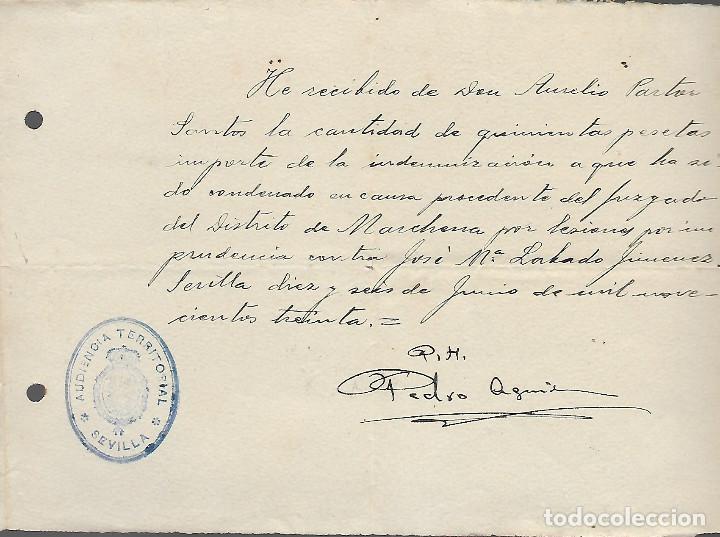 He recibido de Don Aurelio Pastor
Santos la cantidad de quinientas pesetas
importe de la indemnización a que ha si-
do condenado en causa procedente del Juzgado
del Distrito de Marchena por lesiones por im
prudencia contra José Mª Lobado Jimenez.
Sevilla diez y seis de Junio de mil nove-
cientos treinta.=
P.H.
Pedro
AUDIENCIA TERRITORIAL
* SEVILLA *
todocoleccion.net